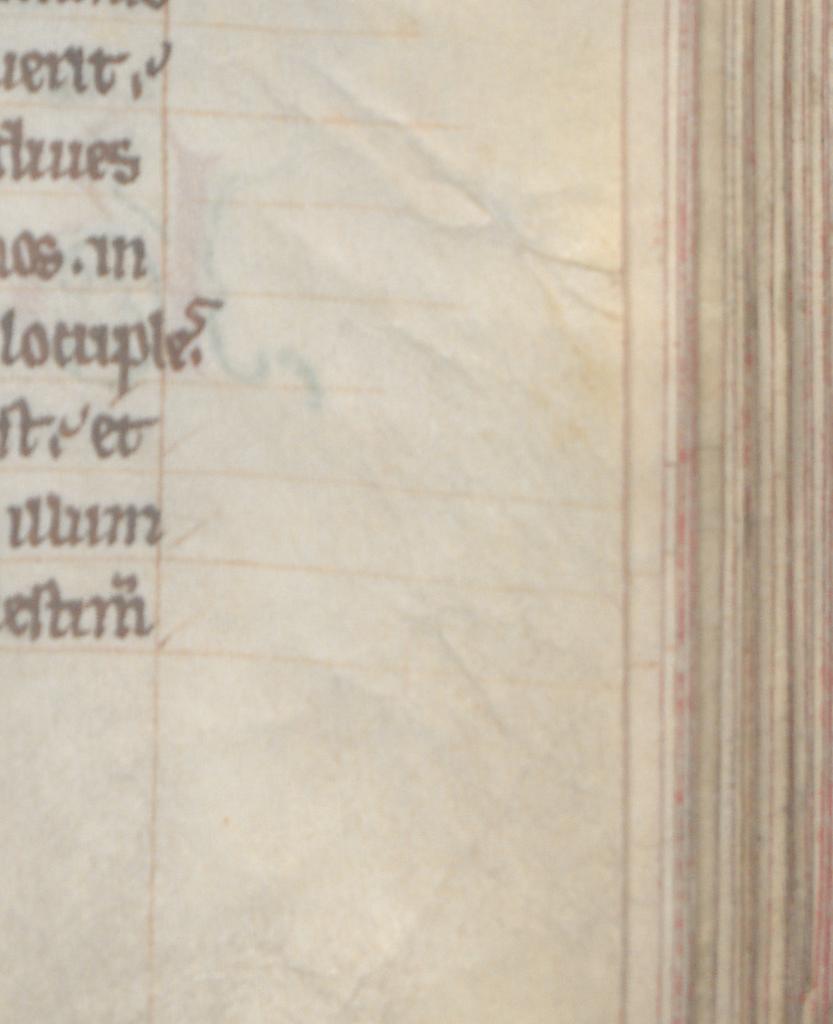 uerit
thues
nos. in
locuple
st et
illum
estim̃